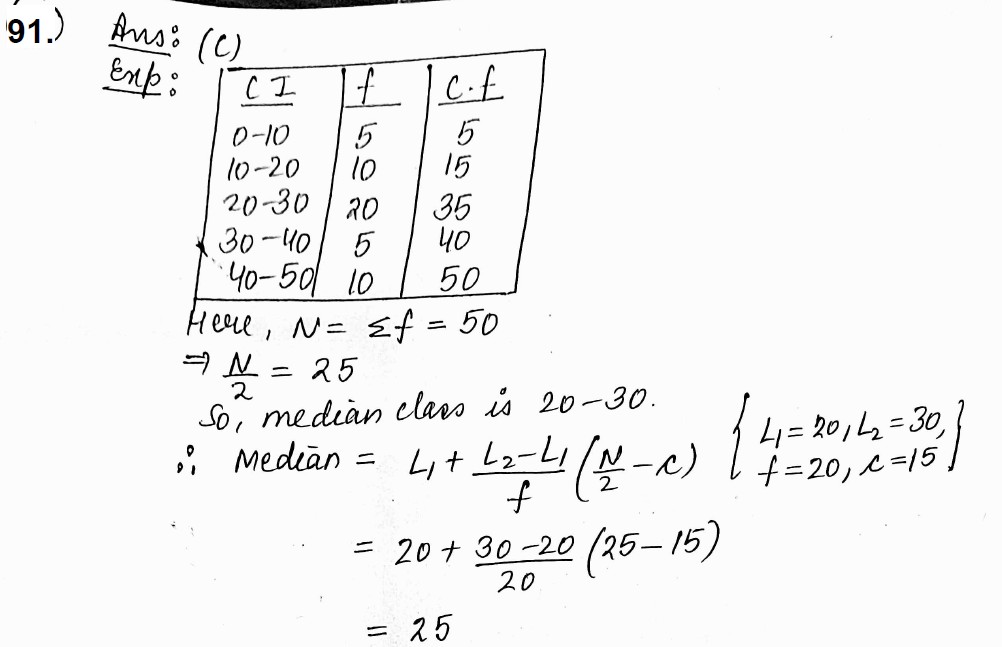 91.) Ans: (C)
Exp:
C I f C.f
0-10 5 5
10-20 10 15
20-30 20 35
30-40 5 40
40-50 10 50
Here, N = Σf = 50
⇒ N/2 = 25
So, median class is 20-30.
∴ Median = L₁ + (L₂-L₁)/f (N/2 - c) {L₁ = 20, L₂ = 30, f = 20, c = 15}
= 20 + (30-20)/20 (25-15)
= 25